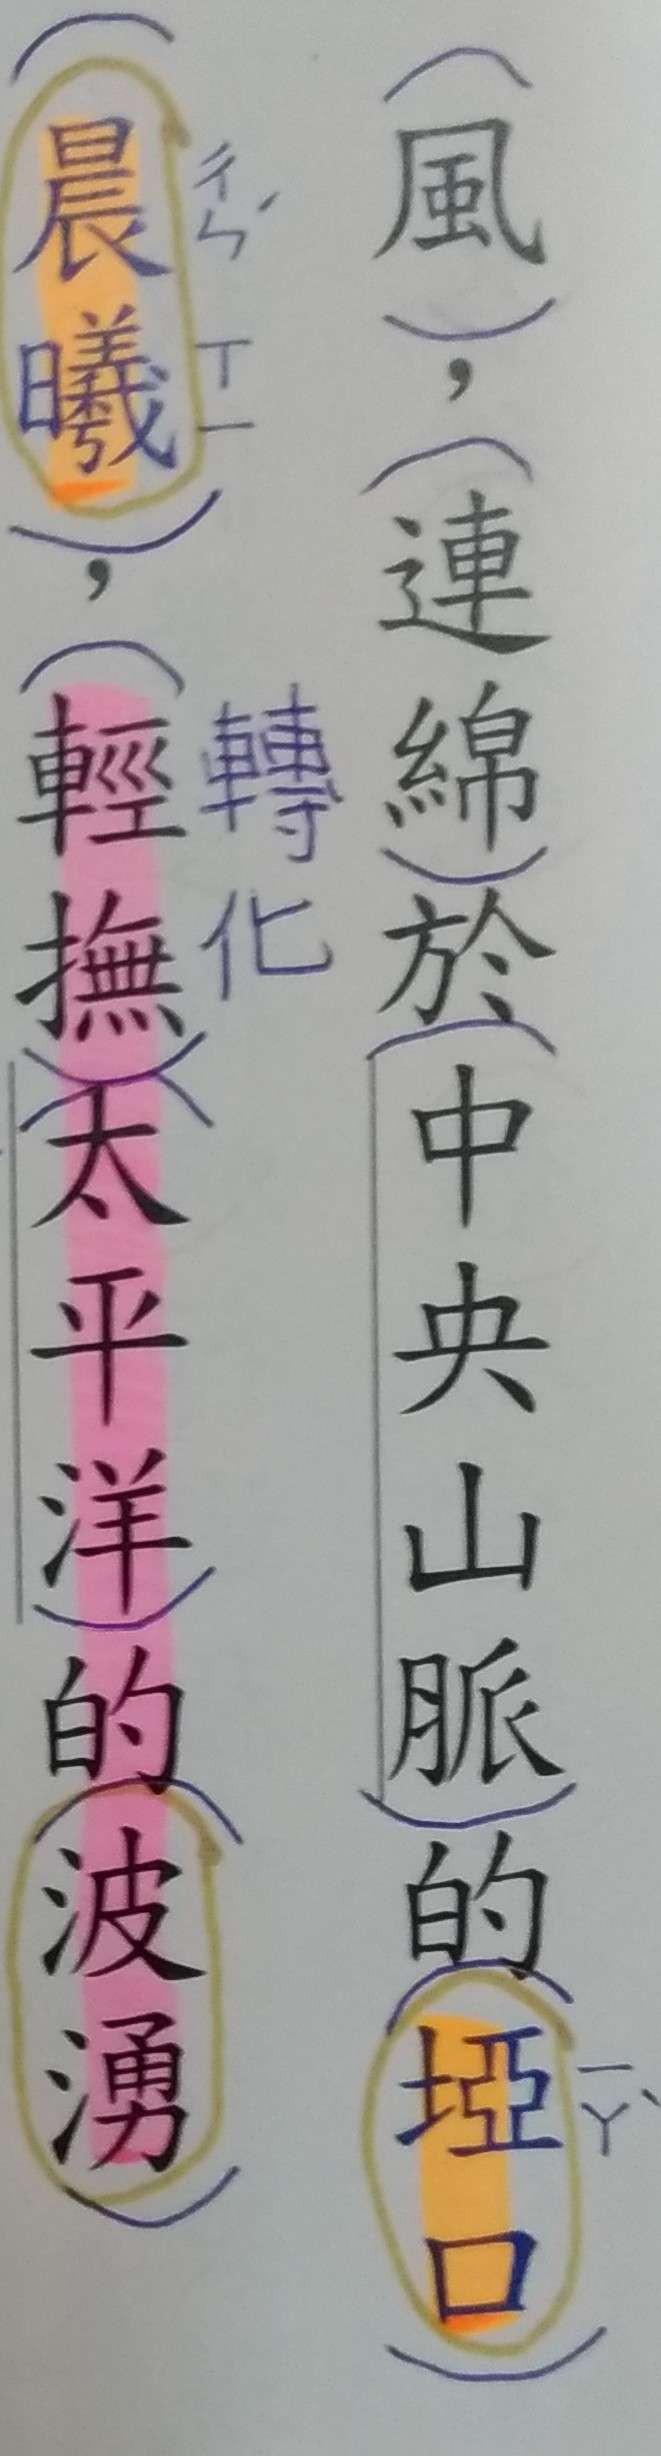 風，連綿於中央山脈的埡口
ㄧㄚˋ
晨曦，輕撫太平洋的波湧
ㄔㄣˊ ㄒㄧ
轉化